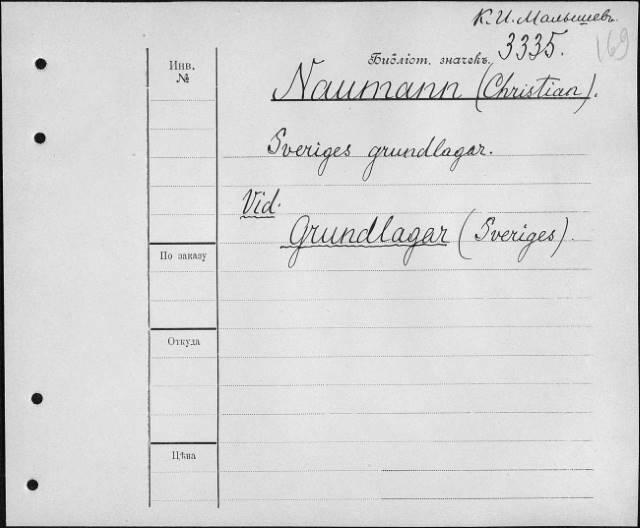 К. И. Малышевъ.
169
Библіот. значекъ. 3335.
Инв.
№
Naumann (Christian).
Sveriges grundlagar.
Vid.
Grundlagar (Sveriges).
По заказу
Откуда
Цѣна